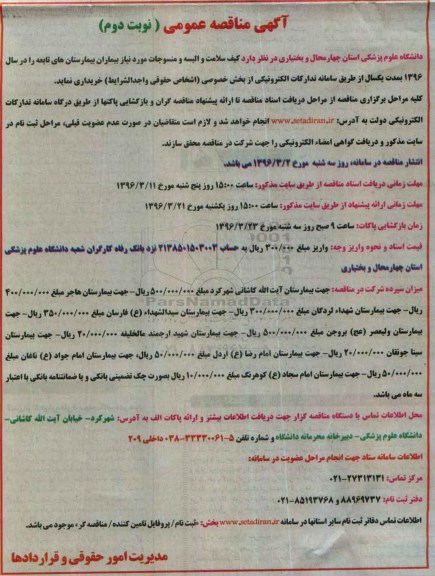 آگهی مناقصه عمومی ( نوبت دوم)
دانشگاه علوم پزشکی استان چهارمحال و بختیاری در نظر دارد کیف سلامت و البسه و منسوجات مورد نیاز بیماران بیمارستان های تابعه را در سال
۱۳۹۶ بمدت یکسال از طریق سامانه تدارکات الکترونیکی از بخش خصوصی (اشخاص حقوقی واجدالشرایط) خریداری نماید.
کلیه مراحل برگزاری مناقصه از مراحل دریافت اسناد مناقصه تا ارائه پیشنهاد مناقصه گران و بازگشایی پاکتها از طریق درگاه سامانه تدارکات
الکترونیکی دولت به آدرس: www.setadiran.ir انجام خواهد شد و لازم است متقاضیان در صورت عدم عضویت قبلی، مراحل ثبت نام در
سایت مذکور و دریافت گواهی امضاء الکترونیکی را جهت شرکت در مناقصه محقق سازند.
انتشار مناقصه در سامانه: روز سه شنبه مورخ ۱۳۹۶/۳/۲ می باشد.
مهلت زمانی دریافت اسناد مناقصه از طریق سایت مذکور: ساعت ۱۵:۰۰ روز پنج شنبه مورخ ۱۳۹۶/۳/۱۱
مهلت زمانی ارائه پیشنهاد از طریق سایت مذکور: ساعت ۱۵:۰۰ روز یکشنبه مورخ ۱۳۹۶/۳/۲۱
زمان بازگشایی پاکات: ساعت ۹ صبح روز سه شنبه مورخ ۱۳۹۶/۳/۲۳
قیمت اسناد و نحوه واریز وجه: واریز مبلغ ۳۰۰/۰۰۰ ریال به حساب ۲۱۳۸۵۰۱۵۰۳۰۰۲ نزد بانک رفاه کارگران شعبه دانشگاه علوم پزشکی
استان چهارمحال و بختیاری
میزان سپرده شرکت در مناقصه: جهت بیمارستان آیت الله کاشانی شهرکرد مبلغ ۵۰۰/۰۰۰/۰۰۰ ریال- جهت بیمارستان هاجر مبلغ ۴۰۰/۰۰۰/۰۰۰
ریال- جهت بیمارستان شهداء لردگان مبلغ ۳۰۰/۰۰۰/۰۰۰ ریال- جهت بیمارستان سیدالشهداء (ع) فارسان مبلغ ۳۵۰/۰۰۰/۰۰۰ ریال- جهت
بیمارستان ولیعصر (عج) بروجن مبلغ ۵۰۰/۰۰۰/۰۰۰ ریال- جهت بیمارستان شهید ارجمند مالخلیفه ۲۰/۰۰۰/۰۰۰ ریال- جهت بیمارستان
سینا جونقان ۲۰/۰۰۰/۰۰۰ ریال- جهت بیمارستان امام رضا (ع) اردل مبلغ ۵۰/۰۰۰/۰۰۰ ریال، جهت بیمارستان امام جواد (ع) ناغان مبلغ
۵۰/۰۰۰/۰۰۰ ریال- جهت بیمارستان امام سجاد (ع) کوهرنگ مبلغ ۱۰/۰۰۰/۰۰۰ ریال بصورت چک تضمینی بانکی و یا ضمانتنامه بانکی با اعتبار
سه ماه می باشد.
محل اطلاعات تماس با دستگاه مناقصه گزار جهت دریافت اطلاعات بیشتر و ارائه پاکات الف به آدرس: شهرکرد- خیابان آیت الله کاشانی-
دانشگاه علوم پزشکی- دبیرخانه محرمانه دانشگاه و شماره تلفن ۵-۳۳۳۳۰۰۶۱-۰۳۸ داخلی ۲۰۹
اطلاعات سامانه ستاد جهت انجام مراحل عضویت در سامانه:
مرکز تماس: ۲۷۳۱۳۱۳۱-۰۲۱
دفتر ثبت نام: ۸۸۹۶۹۷۳۷ و ۸۵۱۹۳۷۶۸-۰۲۱
اطلاعات تماس دفاتر ثبت نام سایر استانها در سامانه www.setadiran.ir بخش: «ثبت نام / پروفایل تامین کننده / مناقصه گر» موجود می باشد.
مدیریت امور حقوقی و قراردادها
ParsNamadData